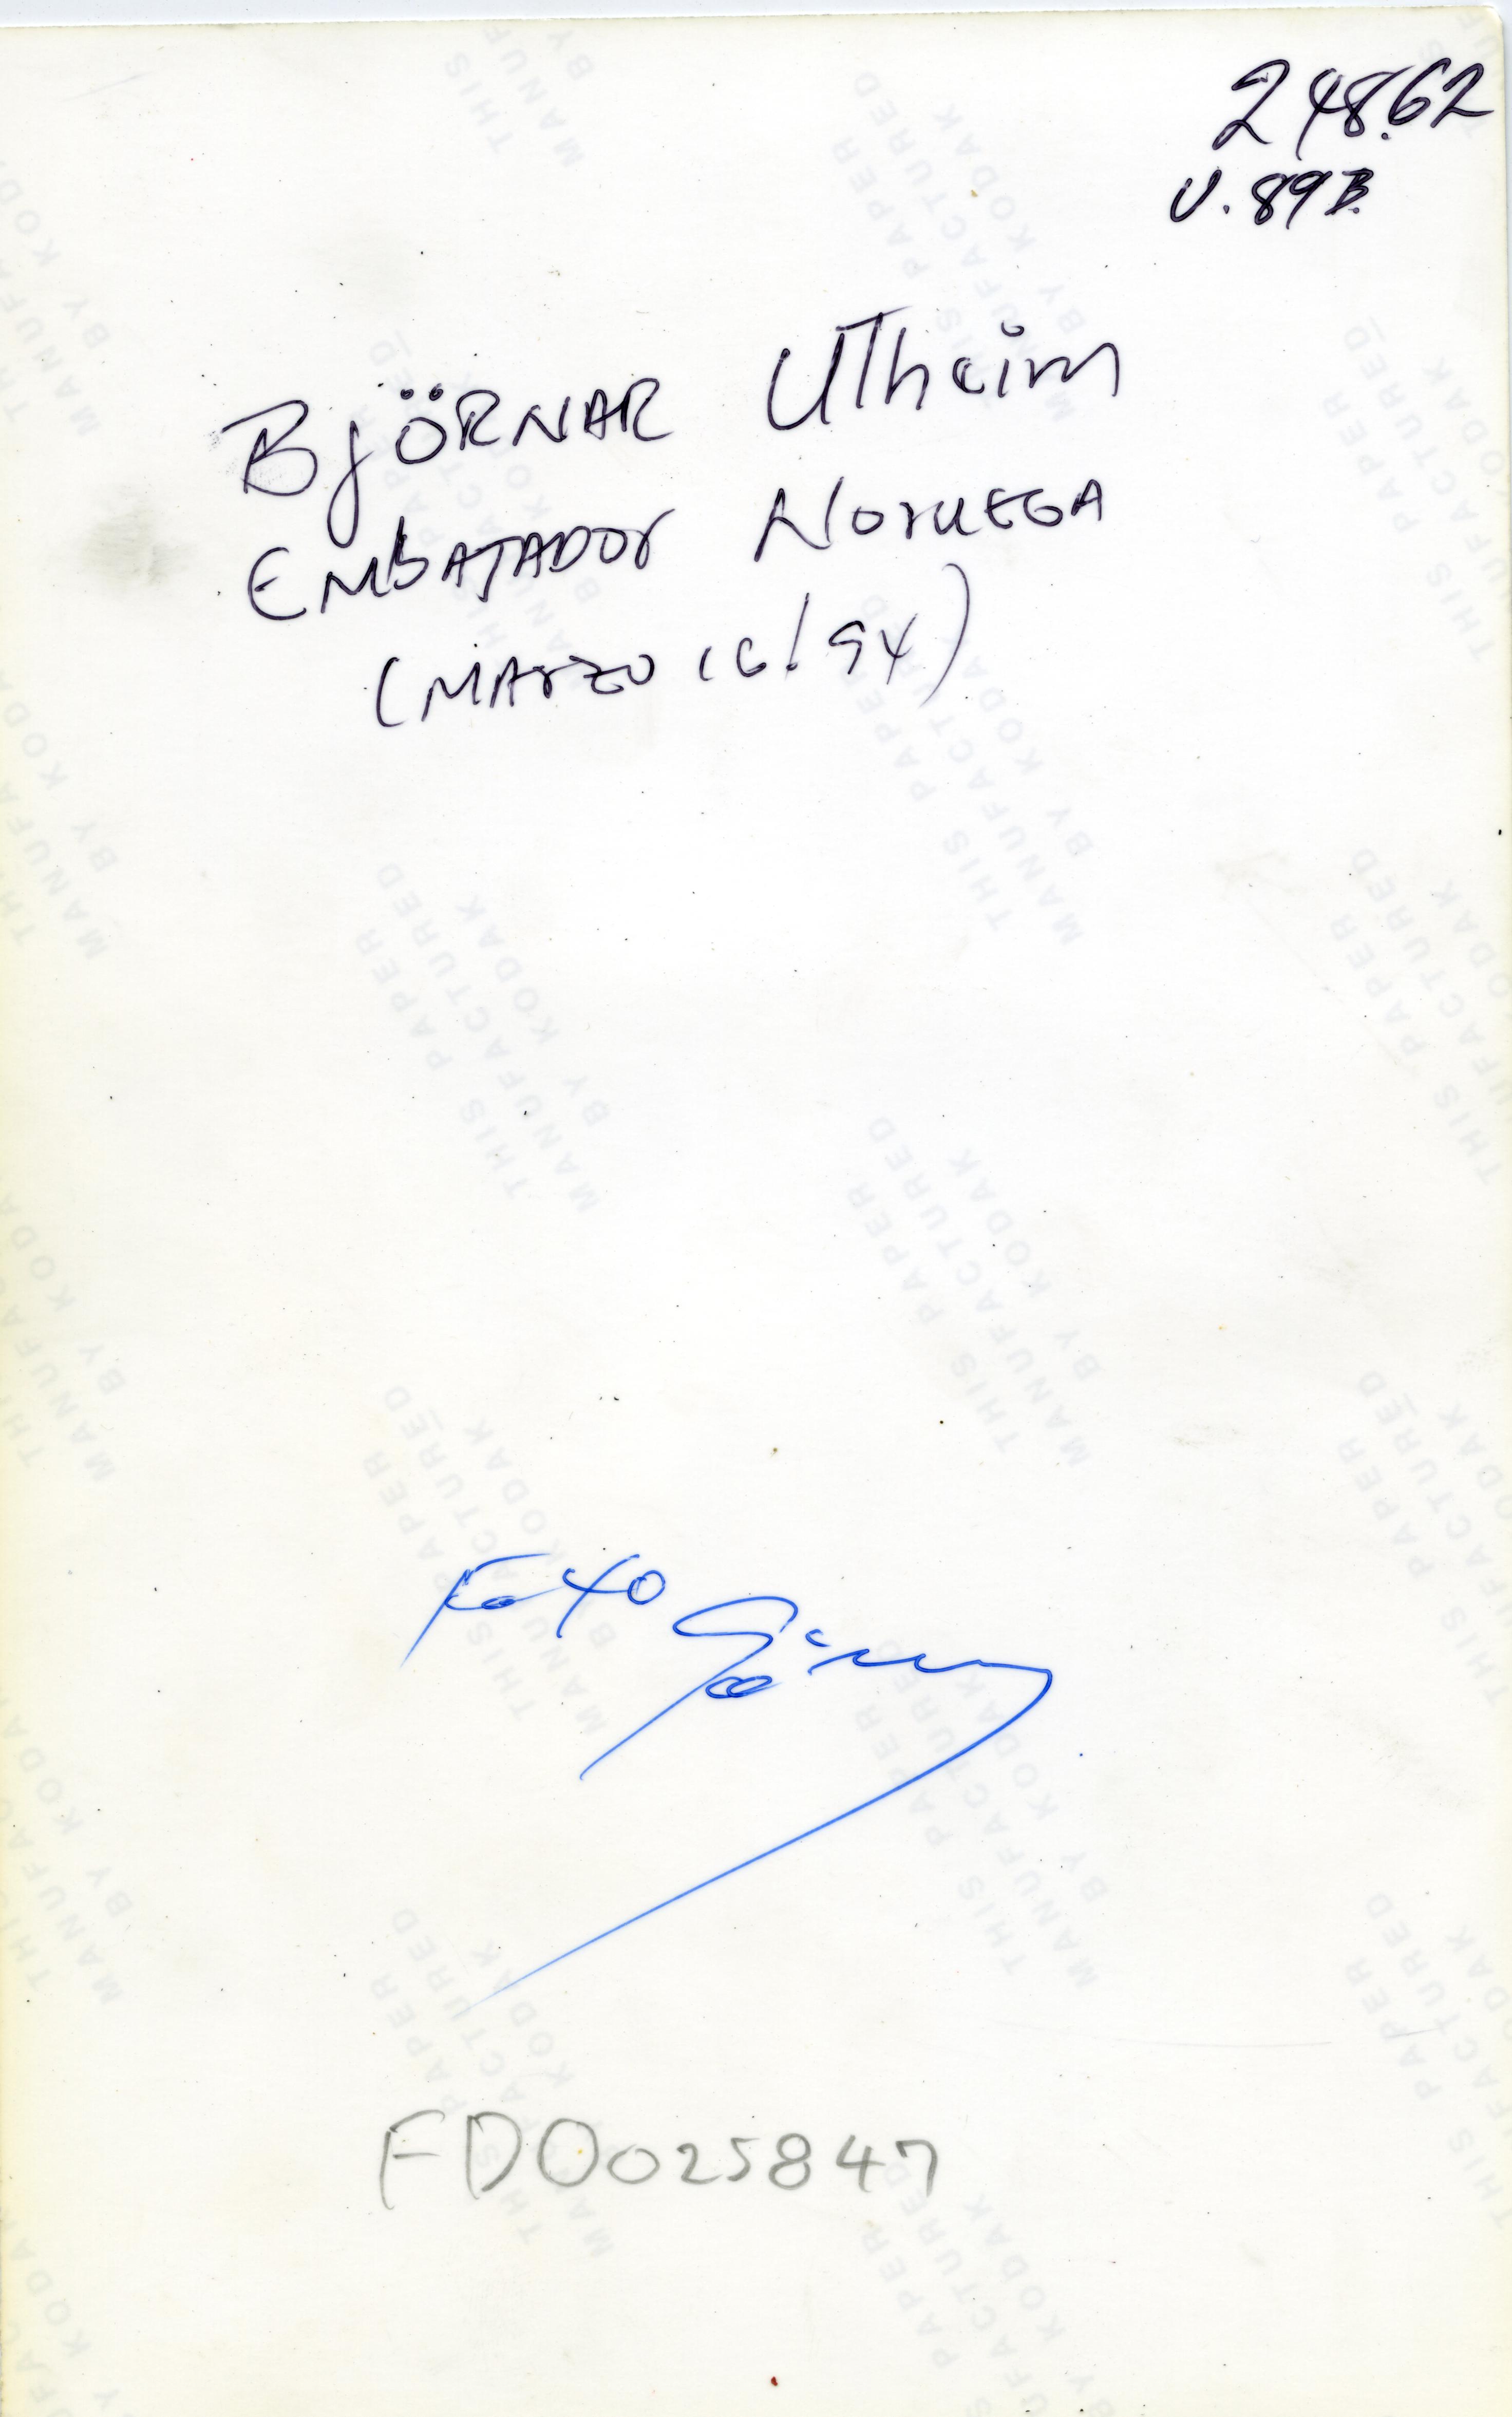 24862
V. 89B.
BJÖRNAR UTheim
EMBAJADOr NOrUEGA
(MArZO 16/94)
Foto
FD0025847
THIS PAPER
MANUFACTURED
BY KODAK